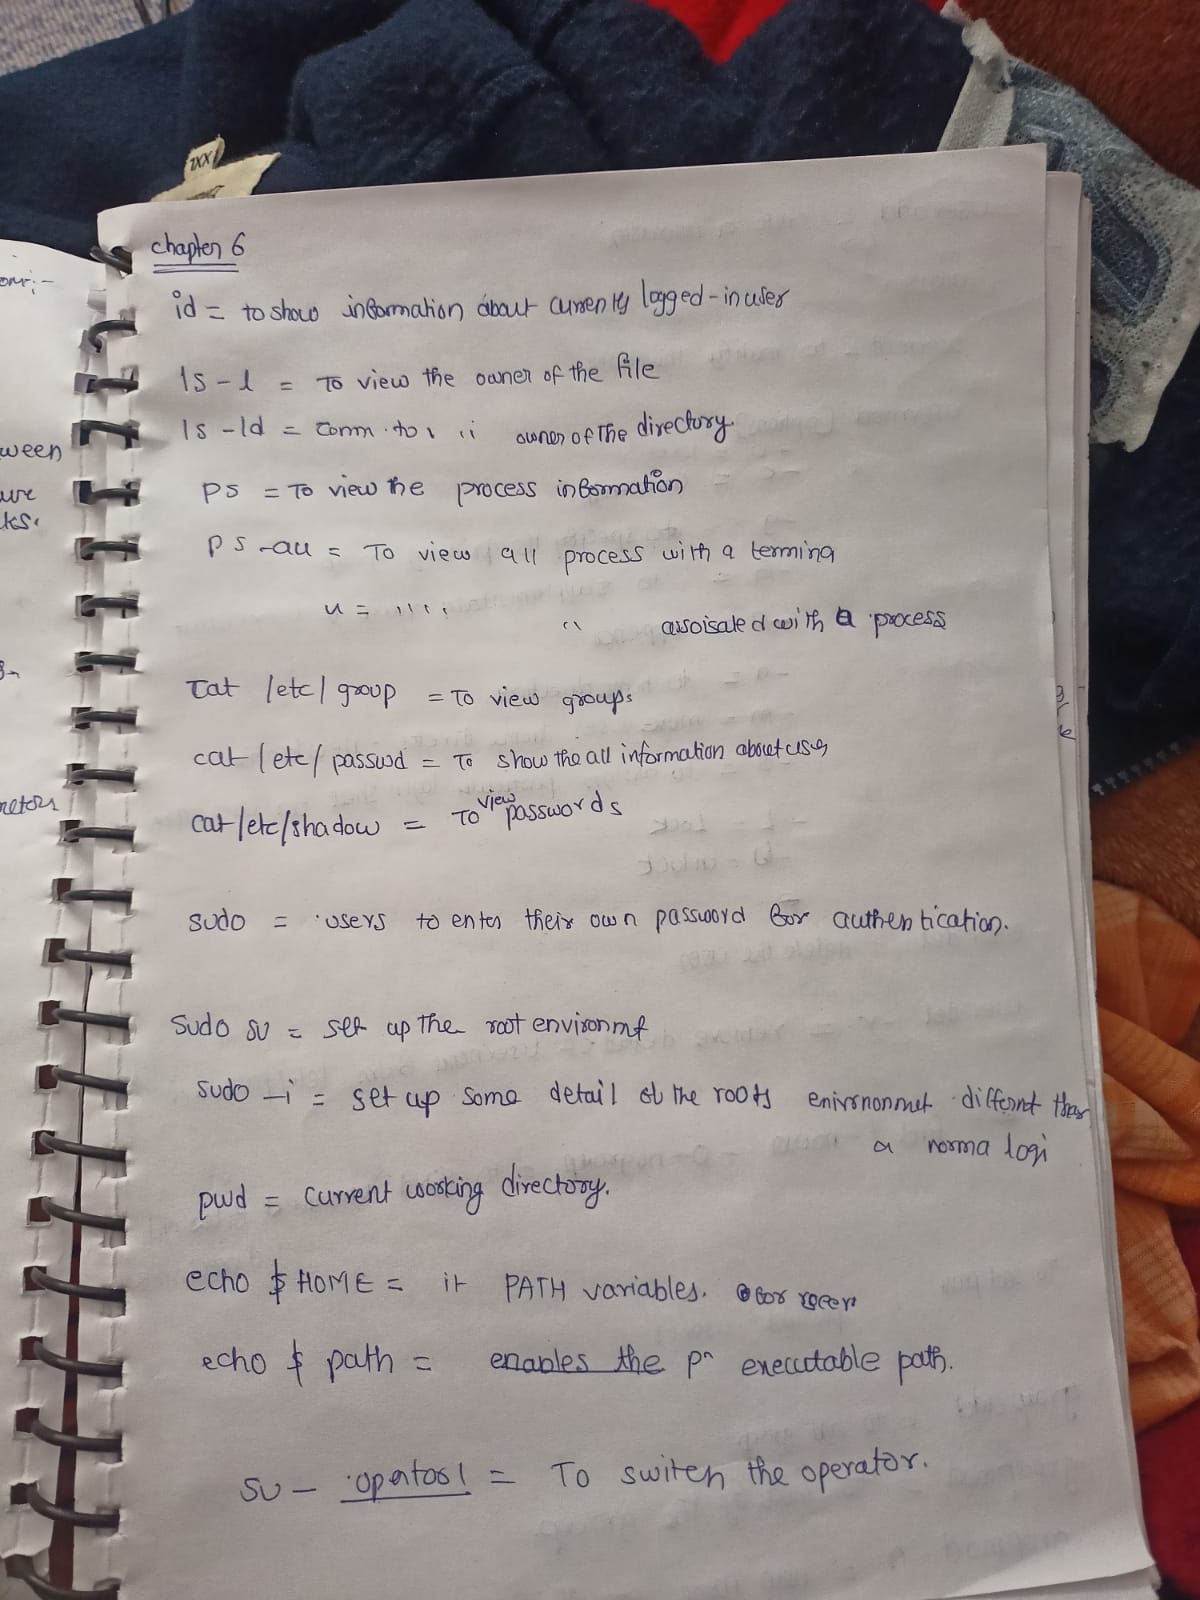 XXL
chapter 6
id = to show information about currently logged-in user
ls -l = To view the owner of the file
ls -ld = comm. to owner of The directory.
ps = To view the process information
ps -au = To view all process with a termina
u = 〃 assoisated with a process
cat /etc/group = To view groups
cat /etc/passwd = To show the all information about user
cat /etc/shadow = To view passwords
sudo = users to enter their own password for authentication.
sudo su = set up The root environmt
sudo -i = set up some detail of the roots enivrnonmet differnt than
a norma logi
pwd = current working directory.
echo $ HOME = it PATH variables. for
echo $ path = enables the executable path.
su - = To switch the operator.
ween
ure
cks.